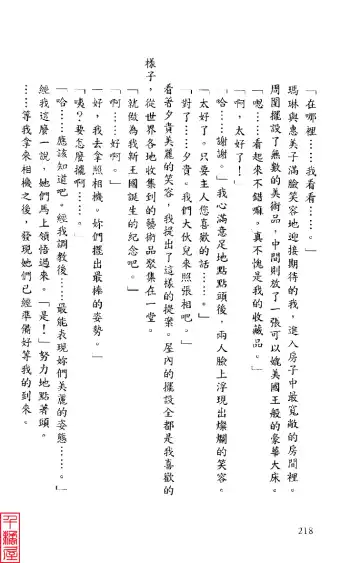 「在哪裡……我看看……。」
瑪琳與惠美子滿臉笑容地迎接期待的我，進入房子中最寬敞的房間裡。
周圍擺設了無數的美術品，中間則放了一張可以媲美國王般的豪華大床。
「嗯……看起來不錯嘛。真不愧是我的收藏品。」
「啊，太好了！」
「哈……謝謝。」我心滿意足地點點頭後，兩人臉上浮現出燦爛的笑容。
「太好了。只要主人您喜歡的話……。」
「對了……夕貴。我們大伙兒來照張相吧。」
看著夕貴美麗的笑容，我提出了這樣的提案。屋內的擺設全都是我喜歡的
樣子，從世界各地收集到的藝術品聚集在一堂。
「就做為我新王國誕生的紀念吧。」
「啊……好啊。」
「好，我去拿照相機。妳們擺出最棒的姿勢。」
「咦？要怎麼擺呢？」
「哈……應該知道吧。經我調教後……最能表現妳們美麗的姿態……。」
經我這麼一說，她們馬上領悟過來。「是！」努力地點著頭。
……等我拿來相機之後，發現她們已經準備好等我的到來。
218